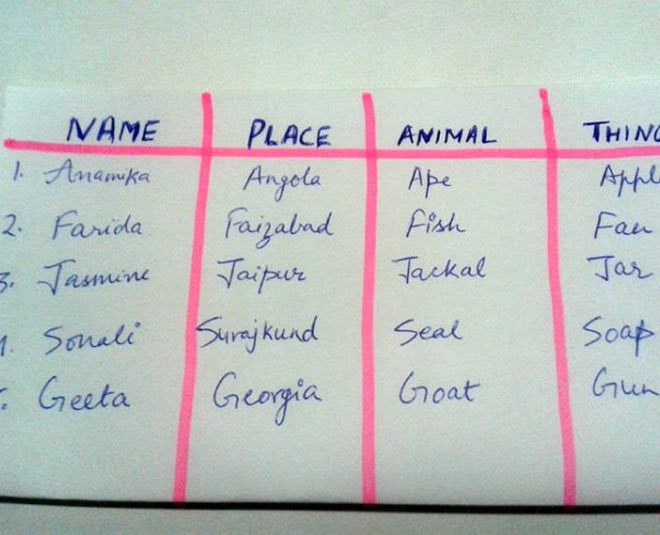 NAME PLACE ANIMAL THING
1. Anamika Angola Ape Appl
2. Farida Faizabad Fish Fan
3. Jasmine Jaipur Jackal Jar
4. Sonali Surajkund Seal Soap
5. Geeta Georgia Goat Gun